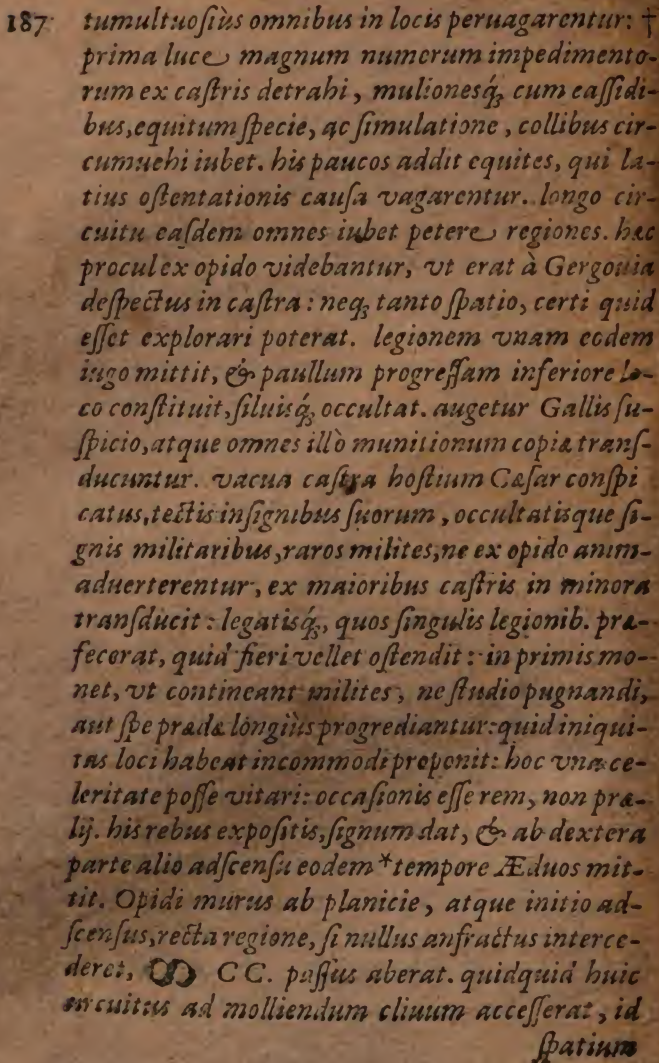 187 tumultuoſiùs omnibus in locis peruagarentur: †
prima luce magnum numerum impedimento-
rum ex caſtris detrahi, mulionesq́; cum caſſidi-
bus, equitum ſpecie, ac ſimulatione, collibus cir-
cumuehi iubet. his paucos addit equites, qui la-
tius oſtentationis cauſa vagarentur. longo cir-
cuitu eaſdem omnes iubet petere regiones. hæc
procul ex opido videbantur, vt erat à Gergouia
deſpectus in caſtra: neq; tanto ſpatio, certi quid
eſſet explorari poterat. legionem vnam eodem
iugo mittit, & paullum progreſſam inferiore lo-
co conſtituit, ſiluisq́; occultat. augetur Gallis ſu-
ſpicio, atque omnes illò munitionum copiæ tranſ-
ducuntur. vacua caſtra hoſtium Cæſar conſpi
catus, tectis inſignibus ſuorum, occultatisque ſi-
gnis militaribus, raros milites, ne ex opido anim-
aduerterentur, ex maioribus caſtris in minora
tranſducit: legatisq́;, quos ſingulis legionib. præ-
fecerat, quid fieri vellet oſtendit: in primis mo-
net, vt contineant milites, ne ſtudio pugnandi,
aut ſpe prædæ longiùs progrediantur: quid iniqui-
tas loci habeat incommodi proponit: hoc vna ce-
leritate poſſe vitari: occaſionis eſſe rem, non præ-
lij. his rebus expoſitis, ſignum dat, & ab dextera
parte alio adſcenſu eodem *tempore Æduos mit-
tit. Opidi murus ab planicie, atque initio ad-
ſcenſus, recta regione, ſi nullus anfractus interce-
deret, ↀ CC. paſſus aberat. quidquid huic
circuitus ad molliendum cliuum acceſſerat, id
ſpatium